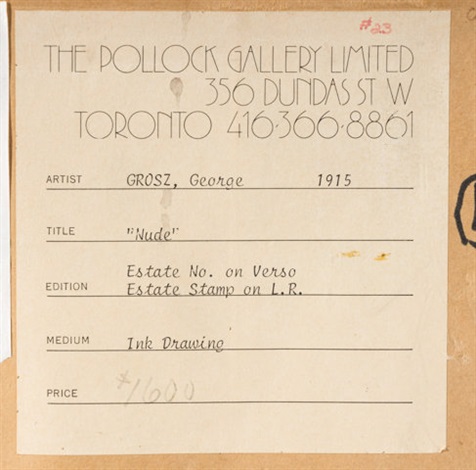 #23
THE POLLOCK GALLERY LIMITED
356 DUNDAS ST W
TORONTO 416·366·8861
ARTIST GROSZ, George 1915
TITLE "Nude"
Estate No. on Verso
EDITION Estate Stamp on L.R.
MEDIUM Ink Drawing
PRICE $1600